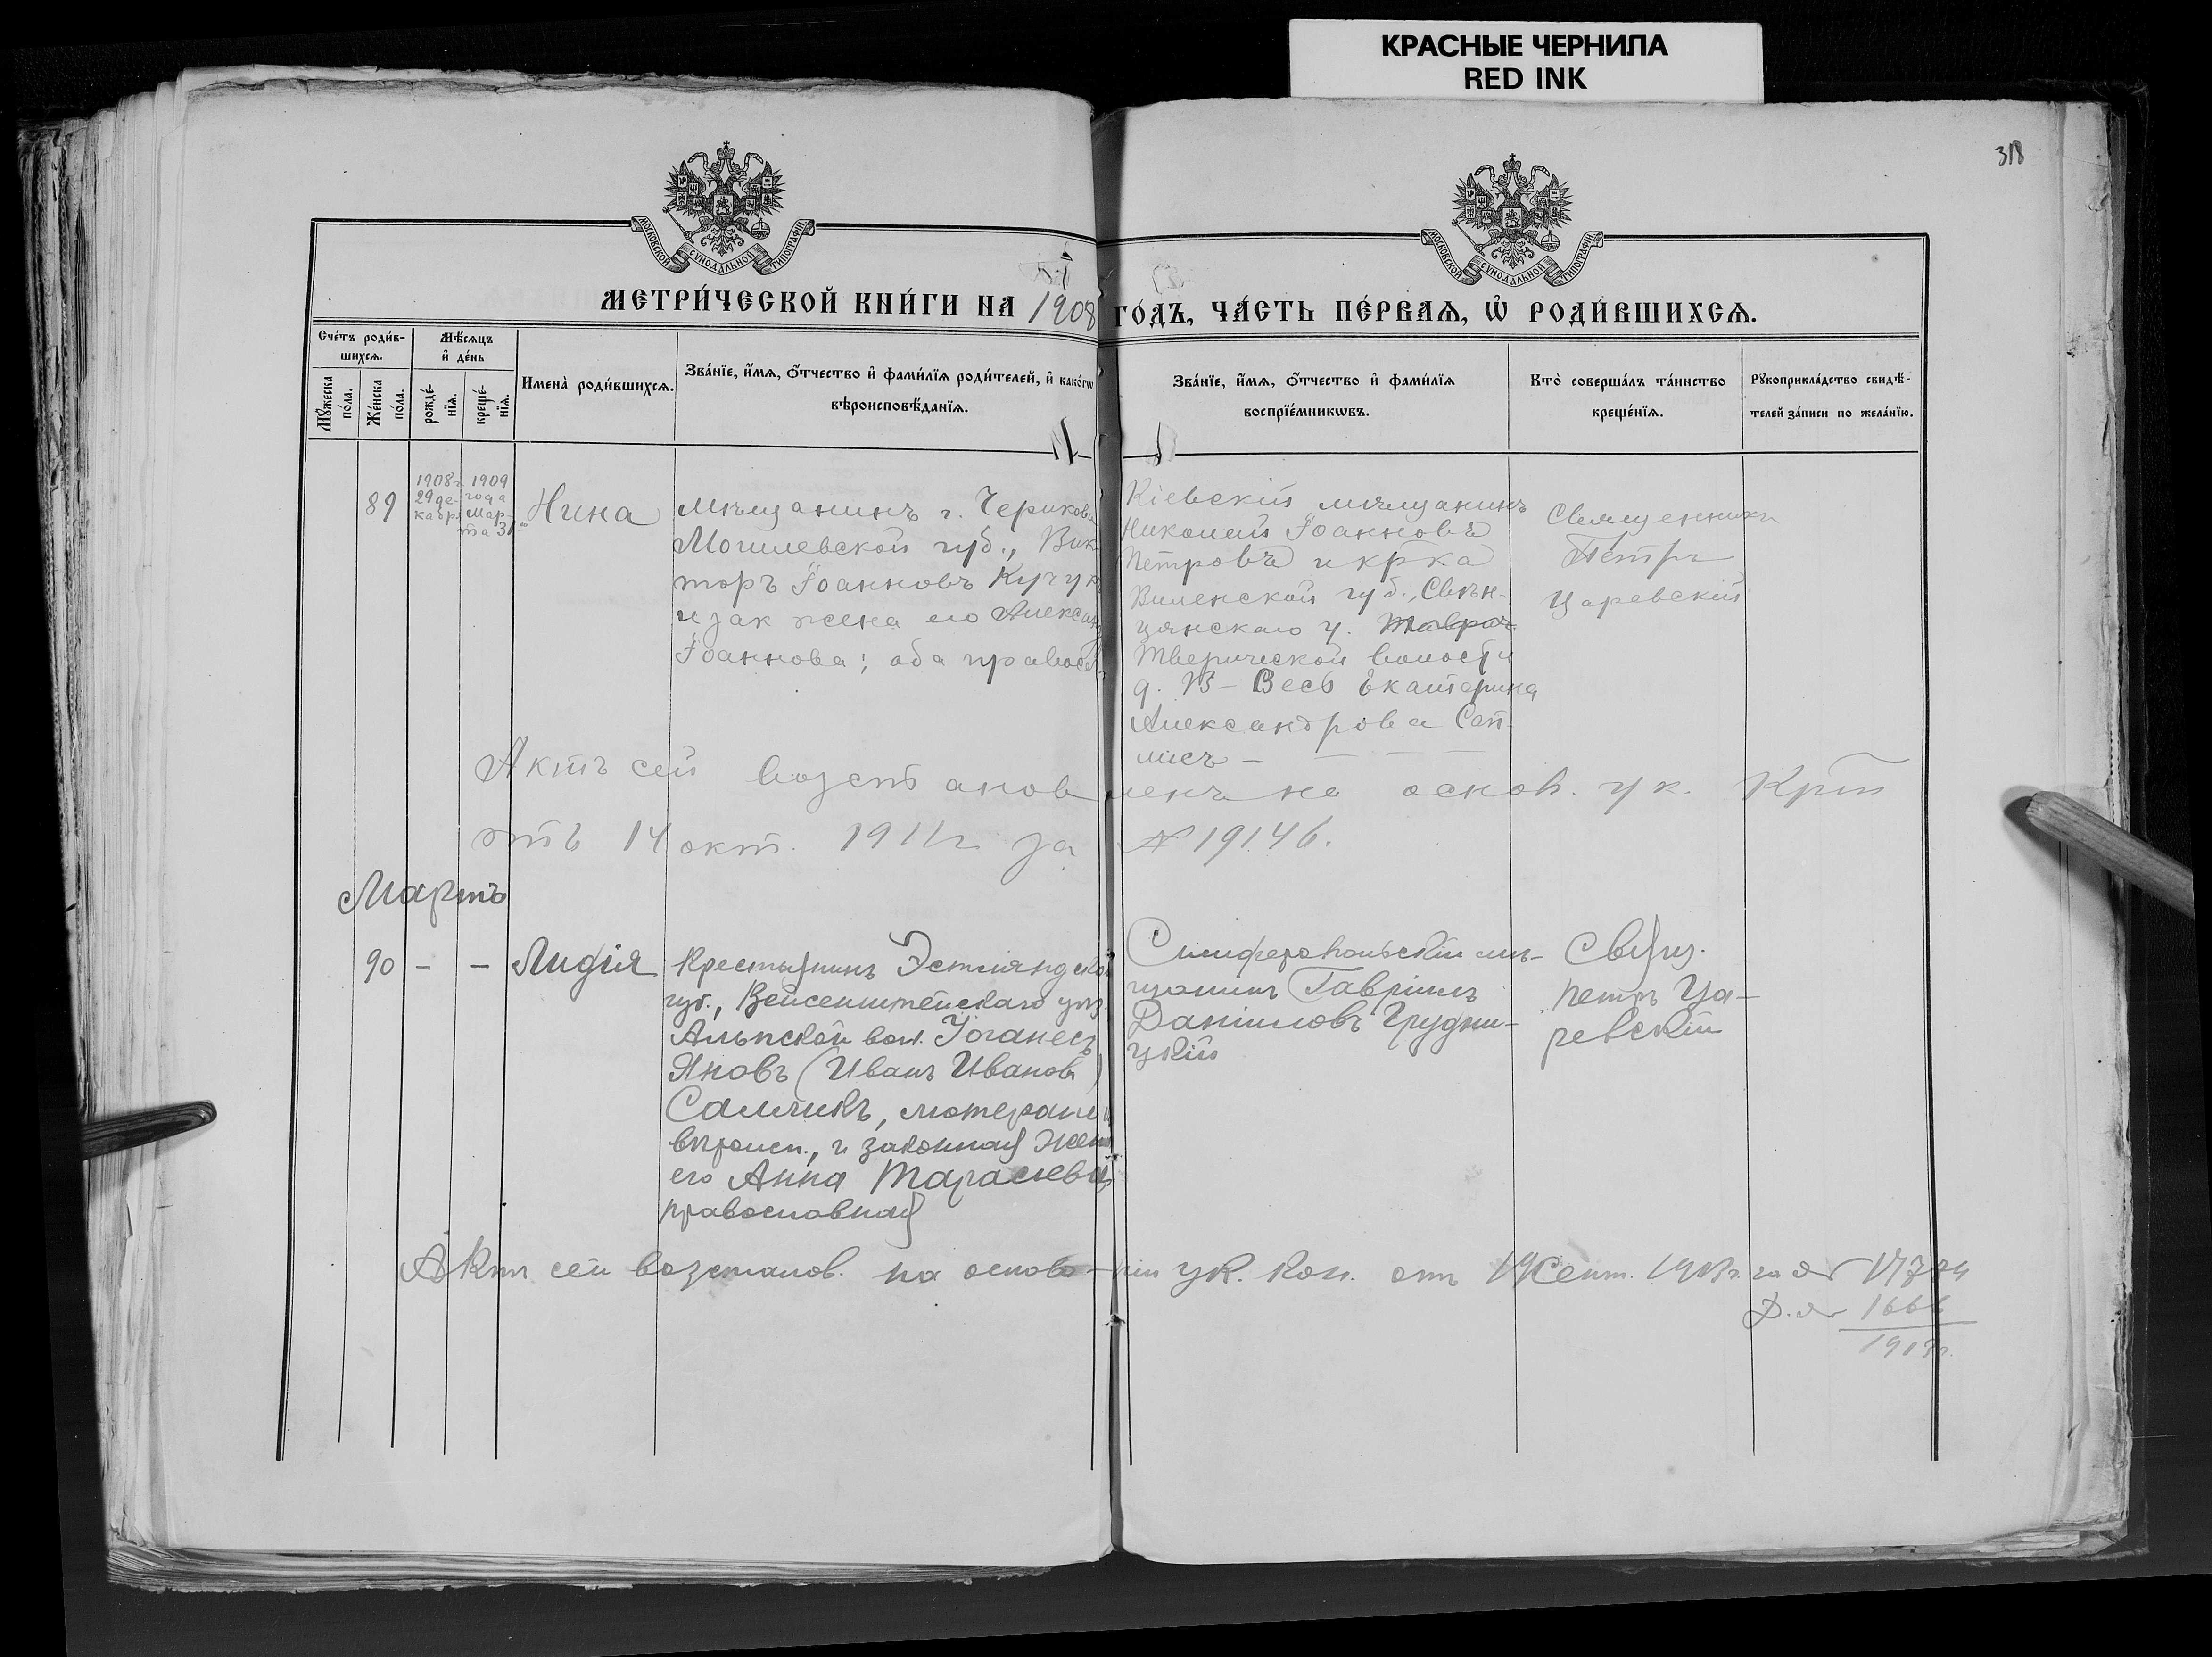 КРАСНЫЕ ЧЕРНИЛА
RED INK
318
МОСКОВСКОЙ СѴНОДАЛЬНОЙ ТИПОГРАФІИ
МОСКОВСКОЙ СѴНОДАЛЬНОЙ ТИПОГРАФІИ
МЕТРИ́ЧЕСКОЙ КНИ́ГИ НА 1908 ГО́ДЪ, ЧА́СТЬ ПЕ́РВАѦ, Ѡ҆ РОДИ́ВШИХСѦ.
Сче́тъ роди́в-
шихсѧ.
Мѣ́сѧцъ
и҆ де́нь
Мꙋ́жеска
по́ла.
Же́нска
по́ла.
рожде́-
нїѧ.
креще́-
нїѧ.
Имена̀ роди́вшихсѧ.
Зва́нїе, и҆́мѧ, ѻ҆́тчество и҆ фами́лїѧ роди́телей, и҆ како́гѡ
вѣроисповѣ́данїѧ.
Зва́нїе, и҆́мѧ, ѻ҆́тчество и҆ фами́лїѧ
воспрїе́мникѡвъ.
Кто̀ соверша́лъ та́инство
креще́нїѧ.
Рꙋкоприкла́дство свидѣ́-
телей за́писи по жела́нїю.
89
1908г.
29 де-
кабр.
1909
года
Мар-
та 31
Нина
Мѣщанинъ г. Черикова
Могилевской губ., Вик
торъ Іоанновъ Кучук
и зак жена его Алексан
Іоаннова; оба правосл.
Кіевскій мѣщанинъ
Николай Іоанновъ
Петровъ и крка
Виленской губ., Свѣн-
цянскаго у.
Тверической волости
Весь Екатерина
Александрова Сап-
лисъ
Священникъ
Петръ
Царевскій
Актъ сей возстановленъ на основ. ук. Крт
отъ 14 окт. 1911г за № 19146.
Мартъ
90 - - Лидія
Крестьянинъ Эстляндской
губ., Вейсенштейнскаго уѣз.
Альпской вол. Іоганесъ
Яновъ (Иванъ Ивановъ)
Самликъ, лютеран
вѣроисп., и законная жена
его Анна Тарасіева
православная
Симферопольскій мѣ-
щанинъ Гавріилъ
Даніиловъ Грудни-
цкій
Свящ.
Петръ Ца-
ревскій
Актъ сей возстанов. на основаніи ук. Кон. отъ 19 Сент. 1913г. за № 17724
Д. № 1666
1913г.